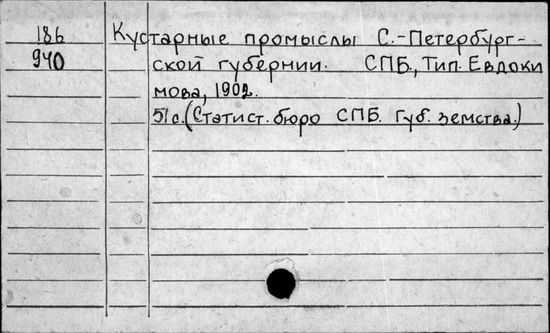 186 Кустарные промыслы С.-Петербург-
940 ской губернии. СПБ., Тип. Евдоки
мова, 1902.
51 с. (Статист. бюро СПБ. Губ. земства.)